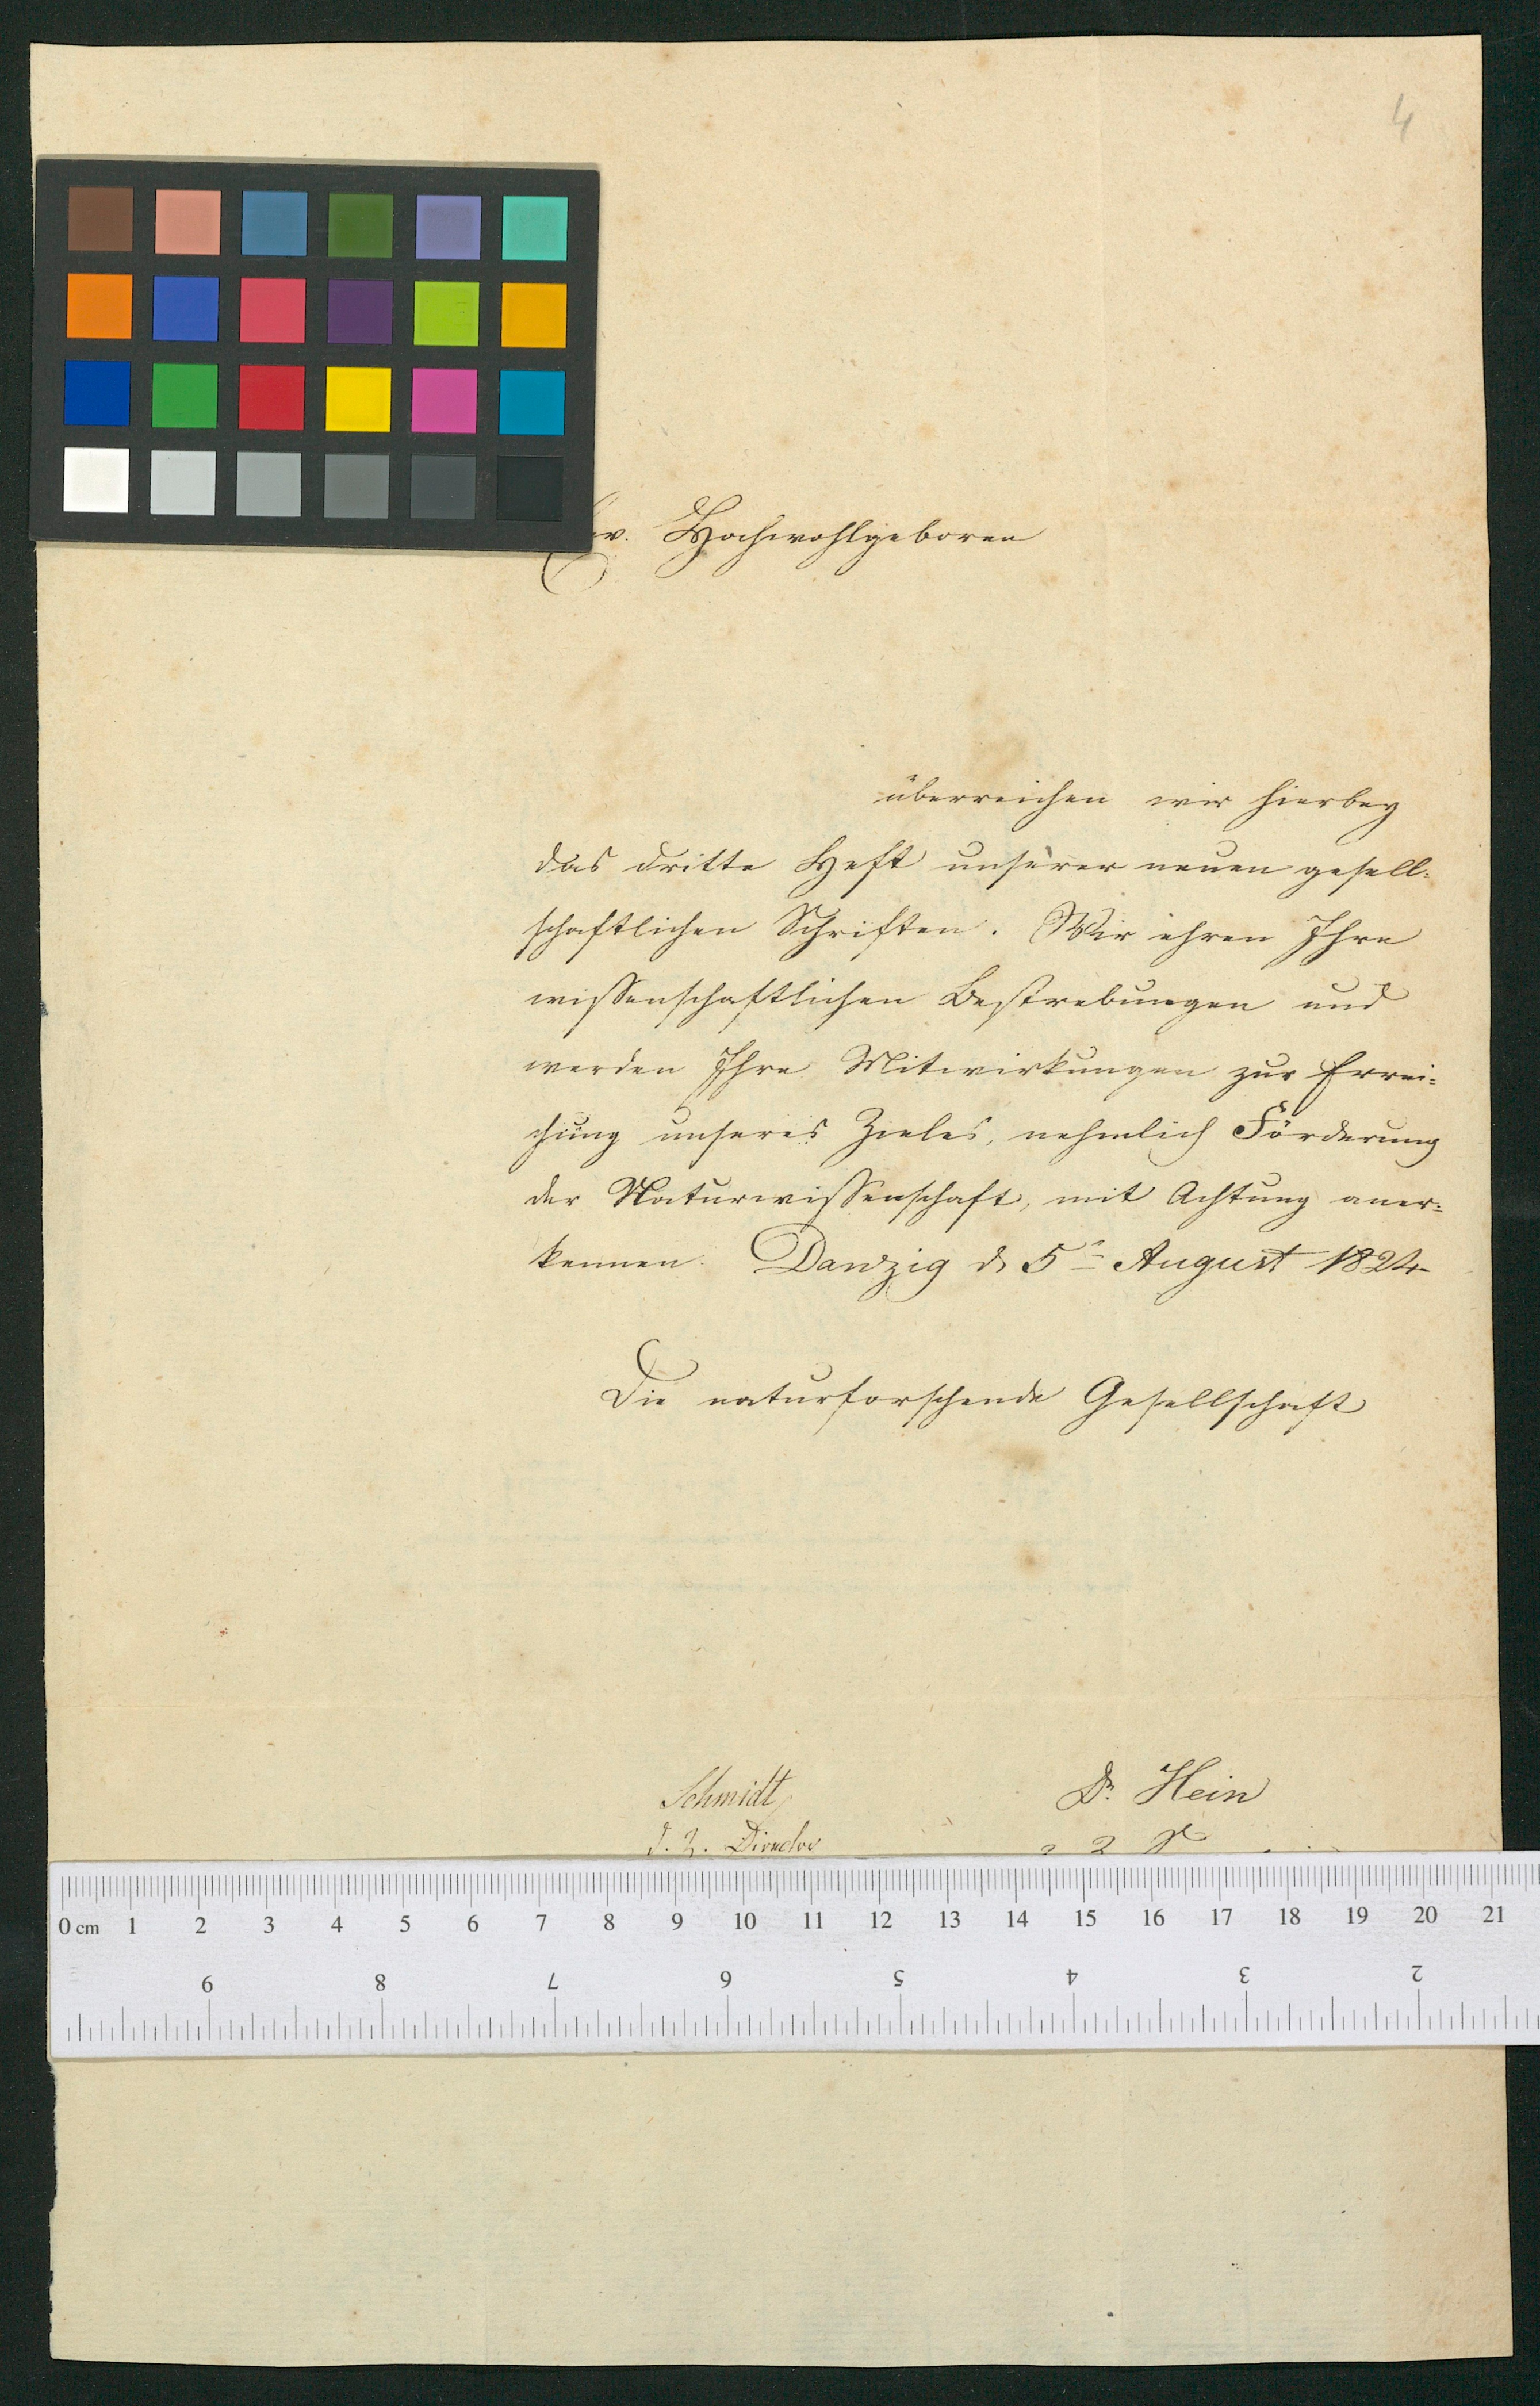 4
Ew. Hochwohlgeboren
überreichen wir hierbey
das dritte Heft unserer neuen gesell-
schaftlichen Schriften. Wir ehren Ihre
wissenschaftlichen Bestrebungen und
werden Ihre Mitwirkungen zur Errei-
chung unseres Zieles, nehmlich Förderung
der Naturwissenschaft, mit Achtung aner-
kennen. Danzig d 5t August 1824
Die naturforschende Gesellschaft
Schmidt
Dr. Hein
d. Z. Director
0 cm 1 2 3 4 5 6 7 8 9 10 11 12 13 14 15 16 17 18 19 20 21
9 8 7 6 5 4 3 2